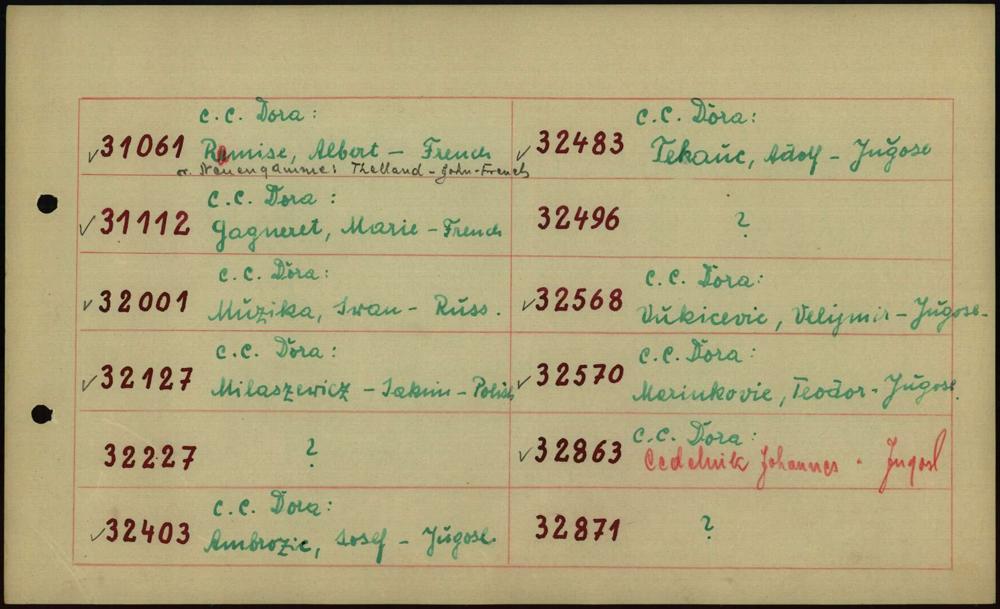 c.c. Dora:
✓31061 Remise, Albert - French
or Neuengamme: Thelland - John - French
c.c. Dora:
✓31112 Gagneret, Marie - French
c.c. Dora:
✓32001 Muzika, Iwan - Russ.
c.c. Dora:
✓32127 Milaszewicz - Jakim - Polish
32227 ?
c.c. Dora:
✓32403 Ambrozic, Josef - Jugosl.
c.c. Dora:
✓32483 Tekauc, Adolf - Jugosl
32496 ?
c.c. Dora:
✓32568 Vukicevic, Velijmir - Jugosl.
c.c. Dora:
✓32570 Marinkovic, Teodor - Jugosl.
c.c. Dora:
✓32863 Cedelnik Johannes - Jugosl
32871 ?